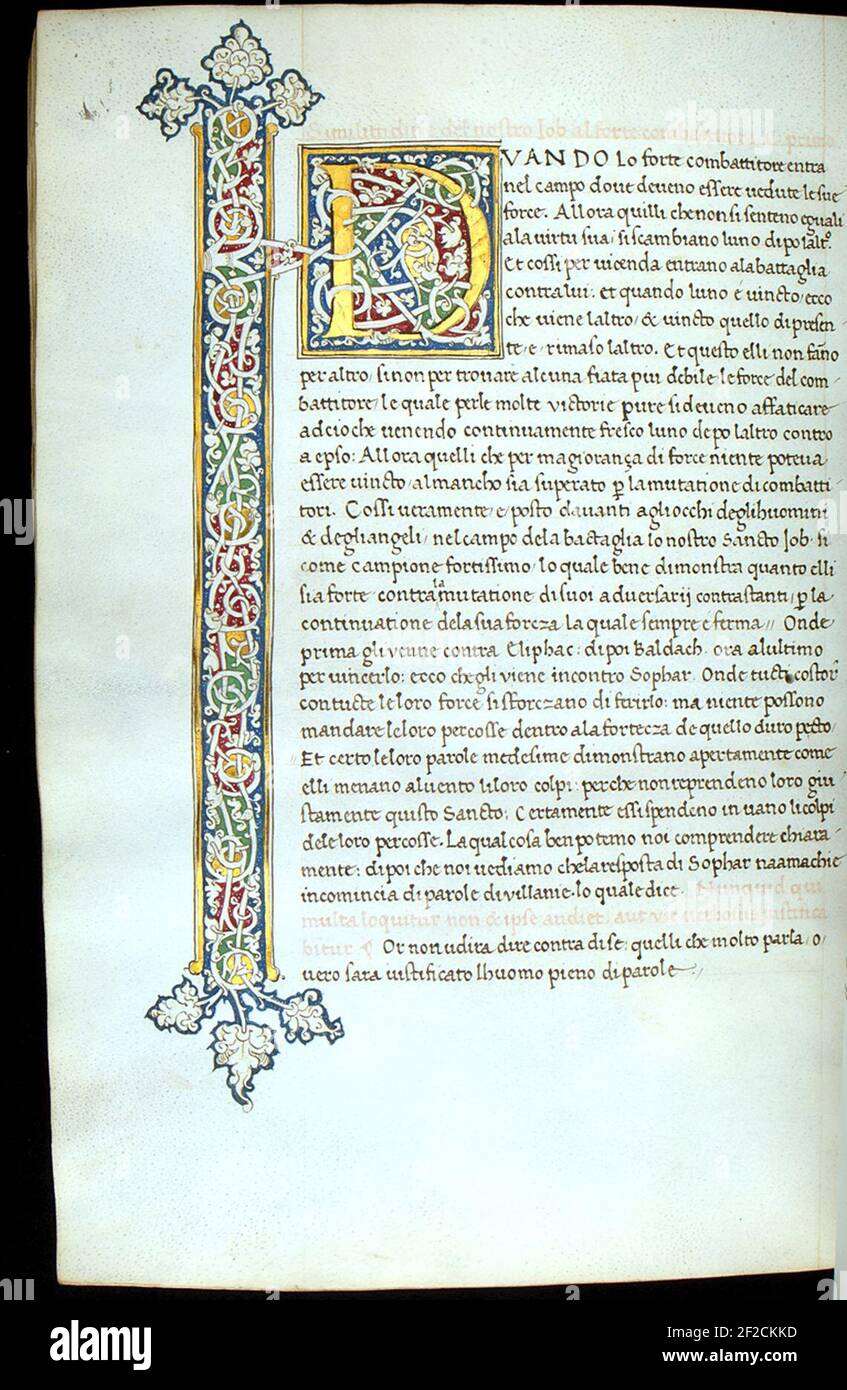 Similitudine del nostro Iob al forte combattitore
D
VANDO lo forte combattitore entra
nel campo doue deueno essere uedute le sue
force. Allora quilli che non si senteno eguali
ala uirtu sua / si scambiano luno dipo laltro.
Et cossi per uicenda entrano ala battaglia
contra lui: et quando luno é uincto / ecco
che uiene laltro / & uincto quello di presen
te / e / rimaso laltro. Et questo elli non fano
per altro / si non per trouare alcuna fiata piu debile le force del com
battitore / le quale perle molte uictorie pure si deueno affaticare
adcio che uenendo continuamente fresco luno depo laltro contro
a epso: Allora quelli che per magiorança di force niente poteua
essere uincto / almancho sia superato p la mutatione di combatti
tori. Cossi ueramente / e / posto dauanti agli occhi degli huomini
& degli angeli / nel campo dela bactaglia lo nostro Sancto Iob. si
come campione fortissimo / lo quale bene dimonstra quanto elli
sia forte contra la mutatione di suoi aduersarij contrastanti / p la
continuatione dela sua forcza la quale sempre é ferma // Onde
prima gli uenne contra Eliphac: di poi Baldach. ora alultimo
per uincerlo: ecco che gli viene incontro Sophar. Onde tucti costor
con tucte le loro force si sforczano di ferirlo: ma niente possono
mandare le loro percosse dentro ala fortecza de quello duro pecto /
Et certo le loro parole medesime dimonstrano apertamente come
elli menano al uento li loro colpi: perche non reprendeno loro giu
stamente quisto Sancto: Certamente essi spendeno in uano li colpi
dele loro percosse. La qual cosa ben potemo noi comprendere chiara
mente: di poi che noi uediamo che la resposta di Sophar naamachie
incomincia di parole di uillanie. lo quale dice. Nunquid qui
multa loquitur non & ipse audiet, aut uir uerbosus iustifica
bitur
Or non udira dire contra di se / quelli che molto parla / o
uero sara iustificato lhuomo pieno di parole /
alamy
Image ID: 2F2CKKD
www.alamy.com